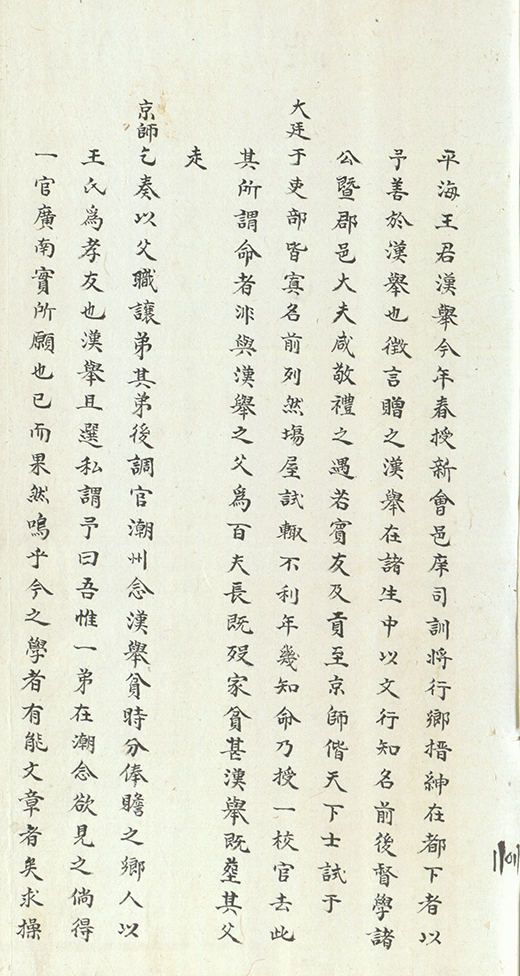 平海王君漢舉今年春授新會邑庠司訓將行鄉搢紳在都下者以
予善於漢舉也徵言贈之漢舉在諸生中以文行知名前後督學諸
公暨郡邑大夫咸敬禮之遇若賓友及貢至京師偕天下士試于
大廷于吏部皆寘名前列然場屋試輙不利年幾知命乃授一校官去此
其所謂命者非與漢舉之父爲百夫長既歿家貧甚漢舉既塟其父
走
京師乞奏以父職讓弟其弟後調官潮州念漢舉貧時分俸贍之鄉人以
王氏爲孝友也漢舉且選私謂予曰吾惟一弟在潮念欲見之倘得
一官廣南實所願也已而果然嗚乎今之學者有能文章者矣求操